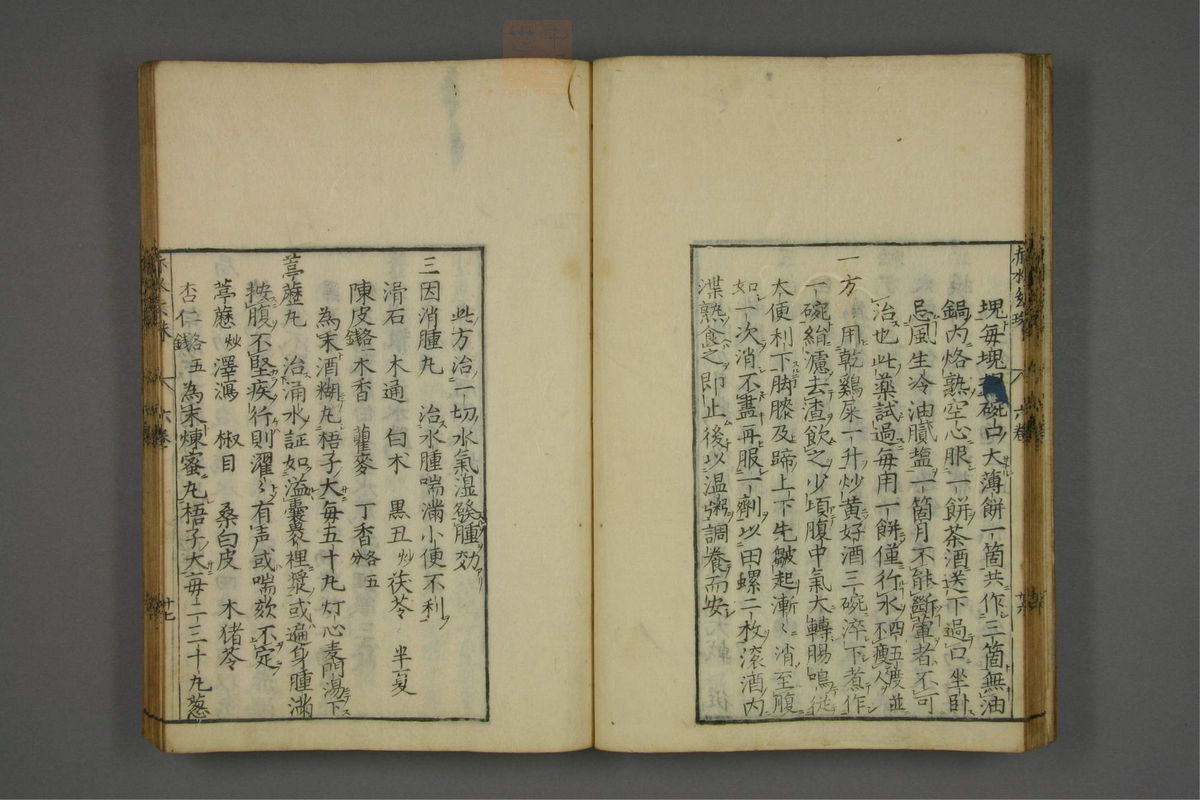 赤水玄珠 六卷
塊每塊 碗口大薄餅一箇共作三箇無油
鍋內烙熟空心服一餅茶酒送下過口坐臥
忌風生冷油膩塩一箇月不能斷葷者不可
治也此藥試過每用一餅僅行水四五度並不瘦人
一方 用乾鷄屎一升炒黄好酒三碗淬下煮作
一碗絹濾去渣飲之少頃腹中氣大轉腸鳴從
大便利下脚膝及蹄上下先皺起漸〻消至腹
如一次消不盡再服一劑以田螺二枚滾酒內
渫熟食之即止後以温粥調養而安
此方治一切水氣湿發腫効
三因消腫丸 治水腫喘滿小便不利
滑石 木通 白术 黑丑炒 茯苓 半夏
陳皮各一錢 木香 瞿麥 丁香各五分
為末酒糊丸梧子大每五十丸灯心麦門湯下
葶藶丸 治涌水証如溢囊裹裡漿或遍身腫滿
按腹不堅疾行則濯〻有声或喘欬不定
葶藶炒 澤瀉 椒目 桑白皮 木猪苓
杏仁各五錢 為末煉蜜丸梧子大每二三十丸葱
六卷 廿七